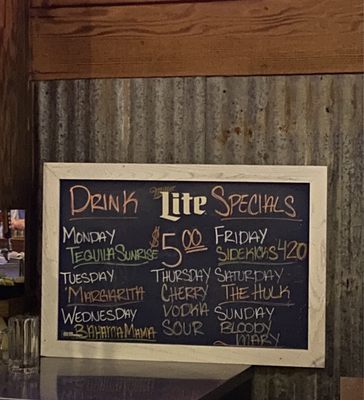 DRINK Miller Lite SPECIALS
$5.00
MONDAY
TEQUILA SUNRISE
TUESDAY
MARGIARITA
WEDNESDAY
BAHAMA MAMA
THURSDAY
CHERRY
VODKA
SOUR
FRIDAY
SIDEKICKS 420
SATURDAY
THE HULK
SUNDAY
BLOODY
MARY